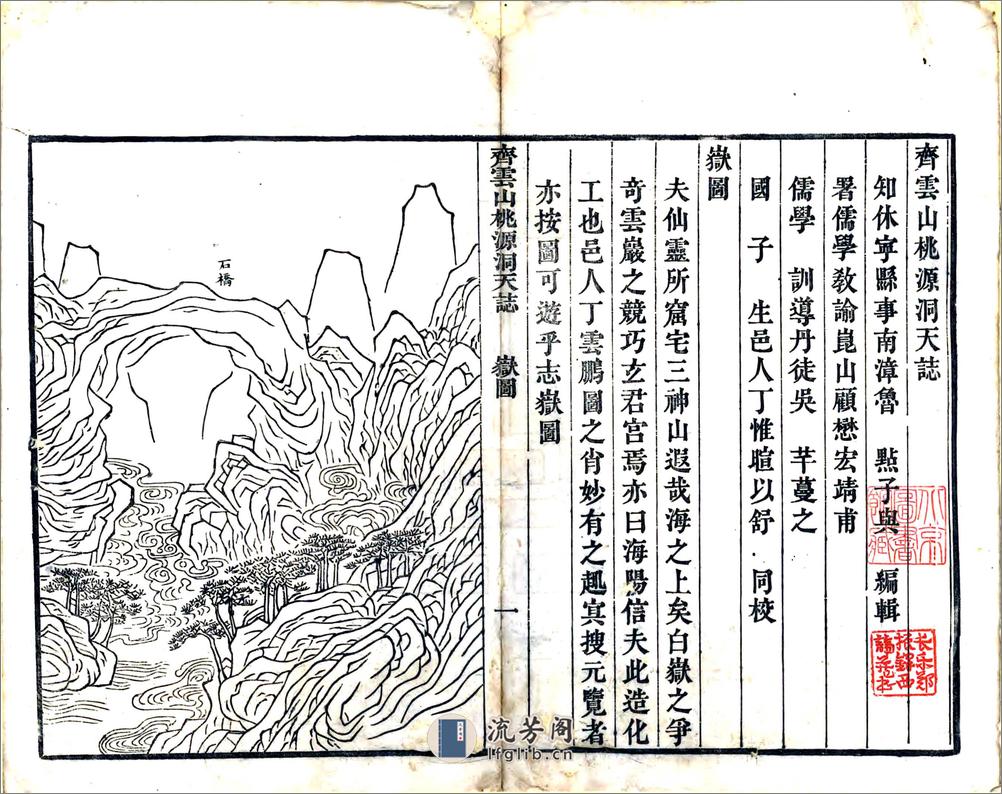 齊雲山桃源洞天誌
知休寧縣事南漳魯　點子與　編輯
署儒學教諭崑山顧懋宏靖甫
儒學　訓導丹徒吳　芊蔓之
國　子　生邑人丁惟暄以舒　同校
嶽圖
夫仙靈所窟宅三神山遐哉海之上矣白嶽之爭
奇雲巖之競巧玄君宮焉亦曰海陽信夫此造化
工也邑人丁雲鵬圖之肖妙有之趣冥搜元覽者
亦按圖可遊乎志嶽圖
齊雲山桃源洞天誌　嶽圖　一
石橋
北京圖書館藏
長樂鄭振鐸西諦藏書
流芳阁
lfglib.cn